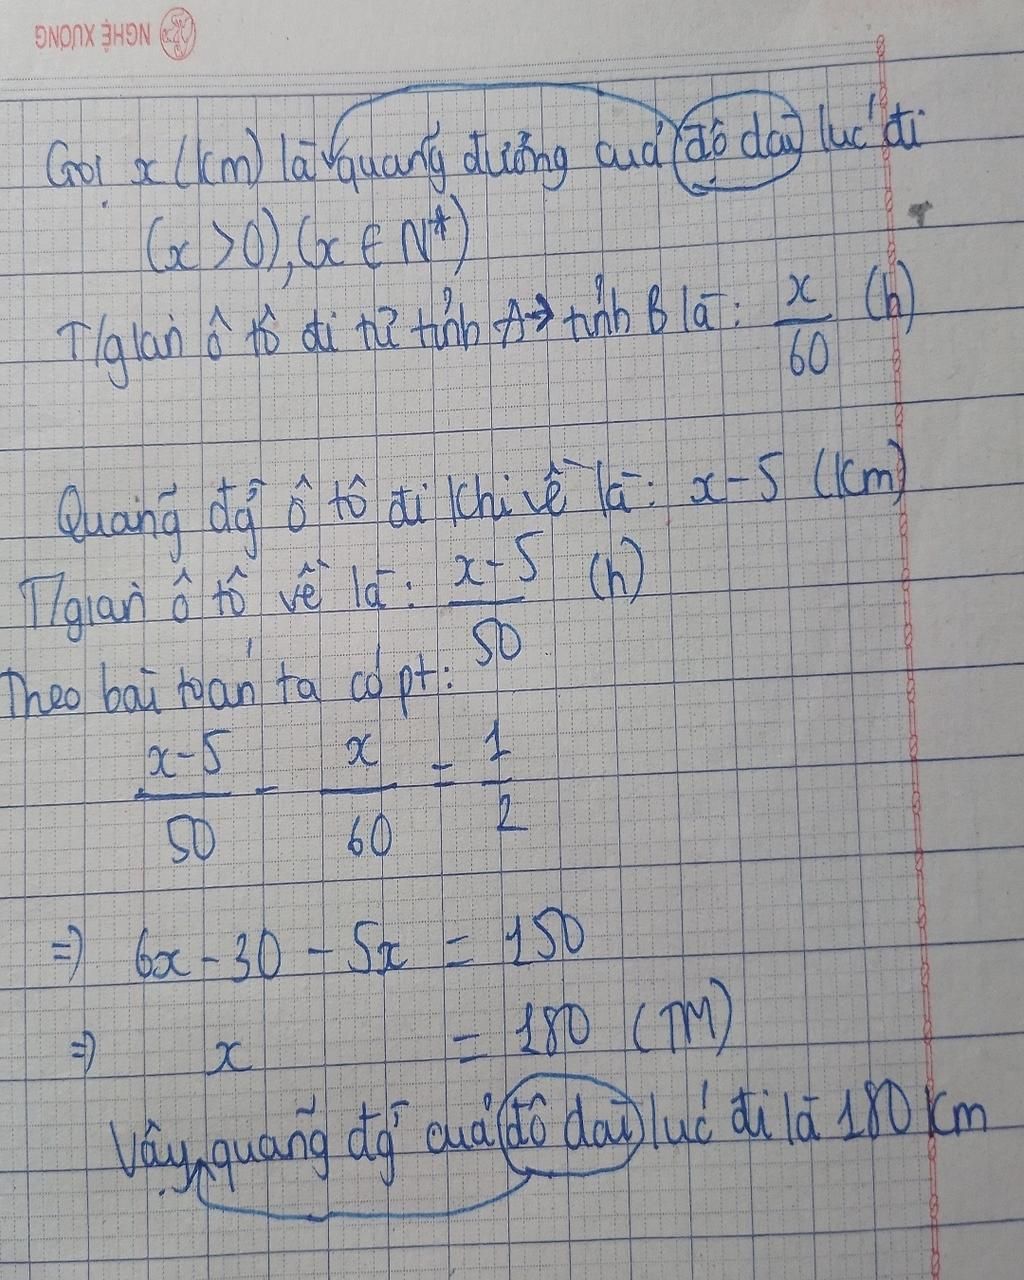 NGHỆ XƯƠNG
Gọi x (km) là quãng đường của độ dài lúc đi
(x > 0), (x ∈ N*)
T/gian ô tô đi từ tỉnh A → tỉnh B là: x/60 (h)
Quãng đg ô tô đi khi về là: x - 5 (km)
T/gian ô tô về là: x-5/50 (h)
Theo bài toán ta có pt:
x-5/50 - x/60 = 1/2
=> 6x - 30 - 5x = 150
=> x = 180 (TM)
Vậy quãng đg của độ dài lúc đi là 180 km